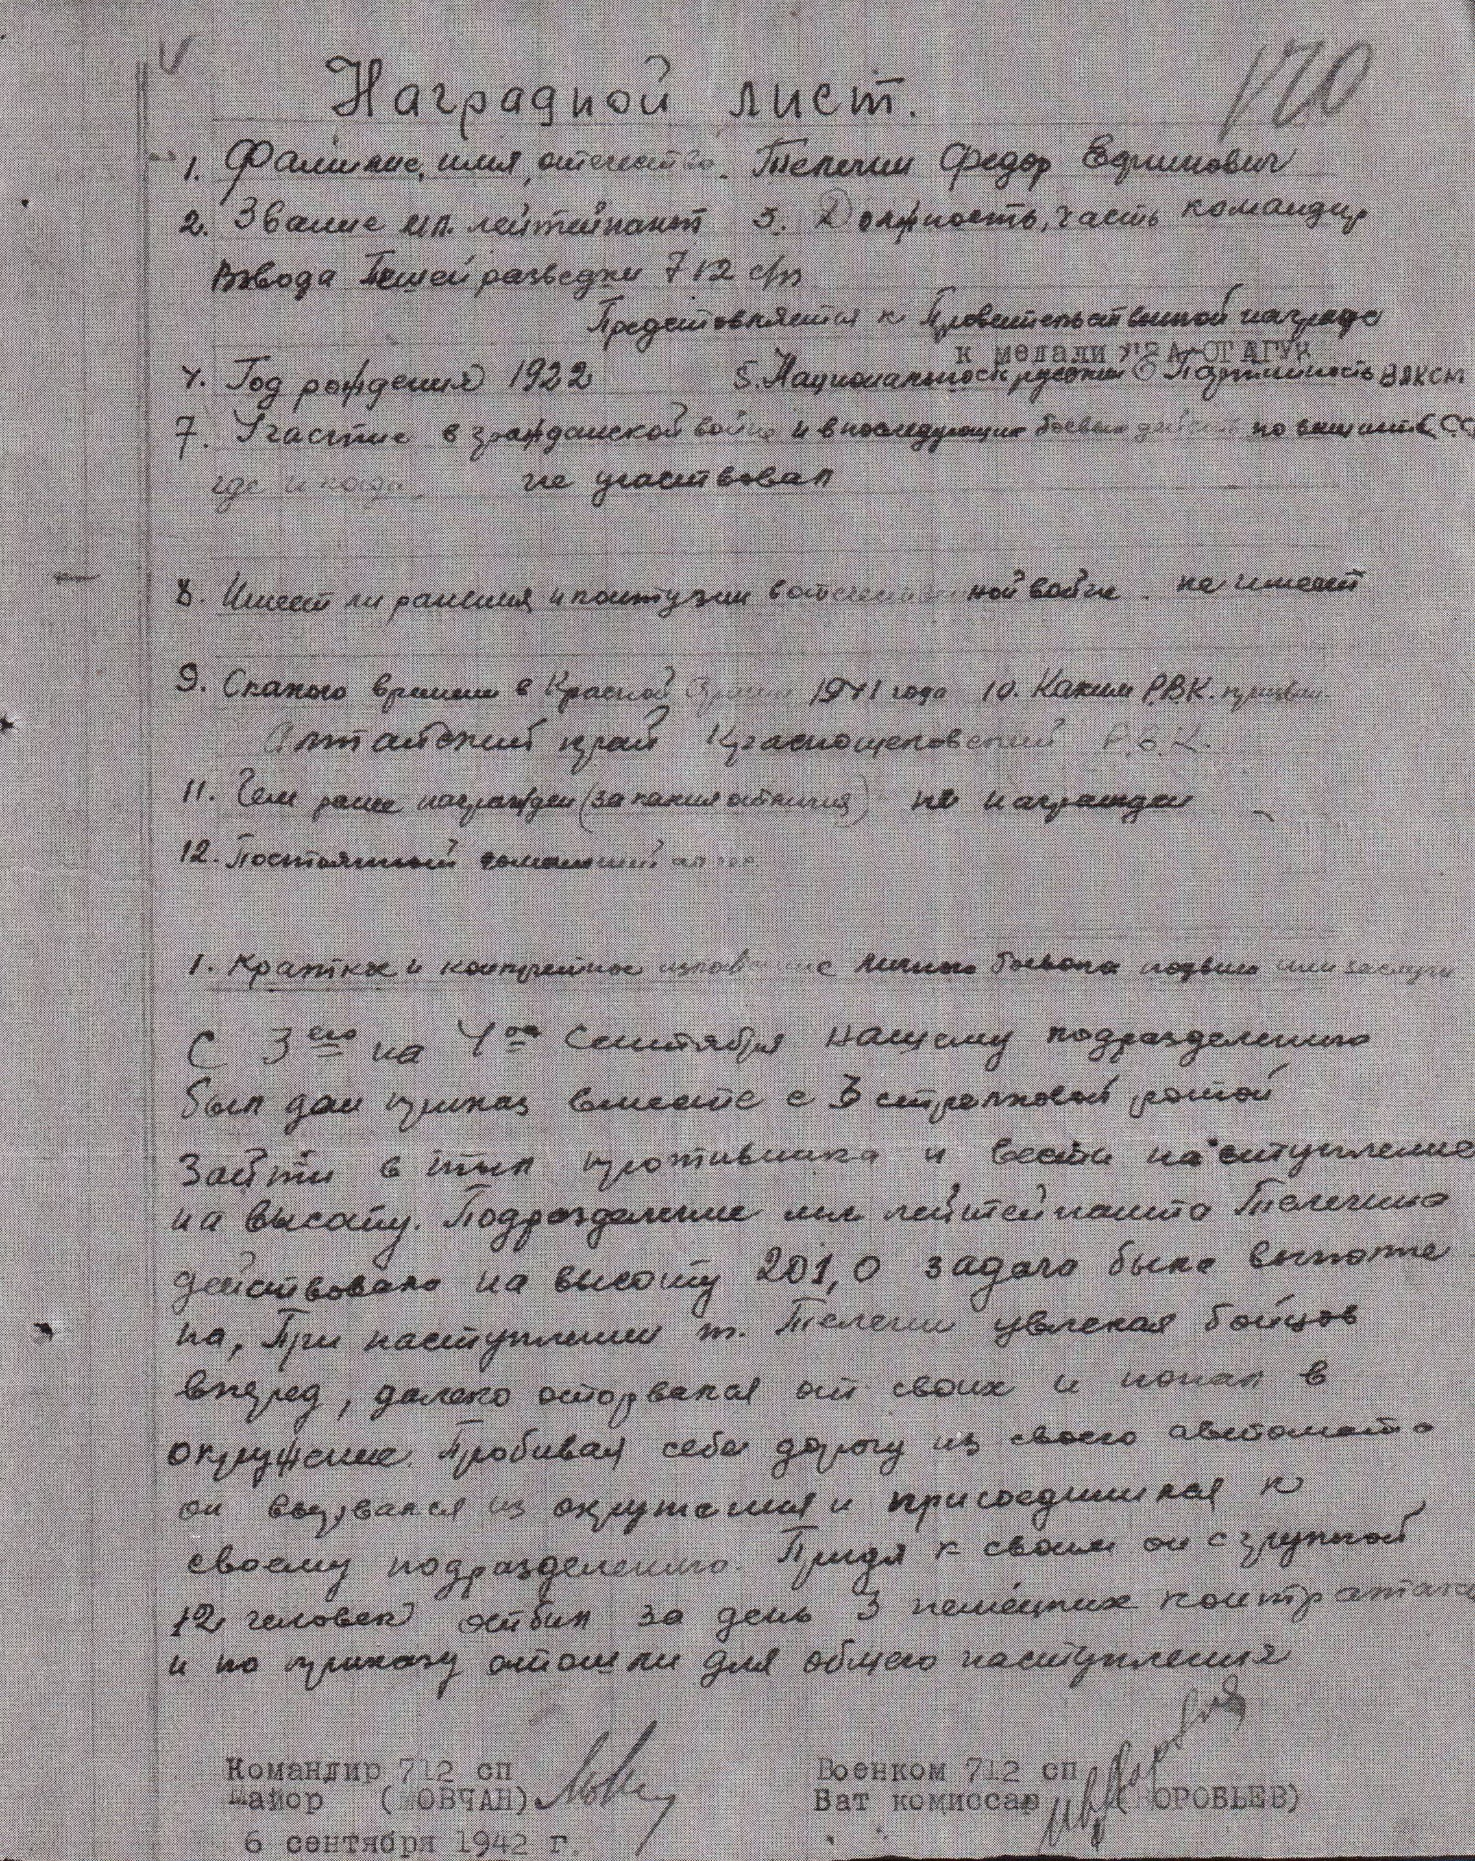 170
Наградной лист.
1. Фамилие, имя, отечество. Телегин Федор Ефимович
2. Звание мл. лейтейнант 3. Должность, часть командир
взвода Пешей разведки 712 с/п
Представляется к Правительственной награде
к медали "ЗА ОТВАГУ"
4. Год рождения 1922 5. Национальность русский 6 Партийность ВЛКСМ
7. Участие в гражданской войне и в последующих боевых действ по защите СССР
где и когда не участвовал
8. Имеет ли ранения и контузии в отечественной войне. не имеет
9. С какого времени в Красной Армии 1941 года 10. Каким Р.В.К. призван.
Алтайский край Краснощековский Р.В.К.
11. Чем ранее награжден (за какия отличия) не награжден
12. Постоянный домашний адрес
1. Краткое и конкретное изложение личного боевого подвига или заслуги
С 3его на 4ое Сентября нашему подразделению
был дан приказ вместе с 3 стрелковой ротой
Зайти в тыл противника и вести наступление
на высоту. Подразделение мл лейтейнанта Телегина
действовало на высоту 201,0 задача была выполне
на, При наступлении т. Телегин увлекая бойцов
вперед, далеко оторвался от своих и попал в
окружение. Пробивая себе дорогу из своего автомата
он вырвался из окружения и присоединился к
своему подразделению. Придя к своим он с группой
12 человек отбил за день 3 немецких контратаки
и по приказу отошли для общего наступления
Командир 712 сп Военком 712 сп
Майор ( ОВЧАН) Бат комиссар ( ОРОБЬЕВ)
6 сентября 1942 г.